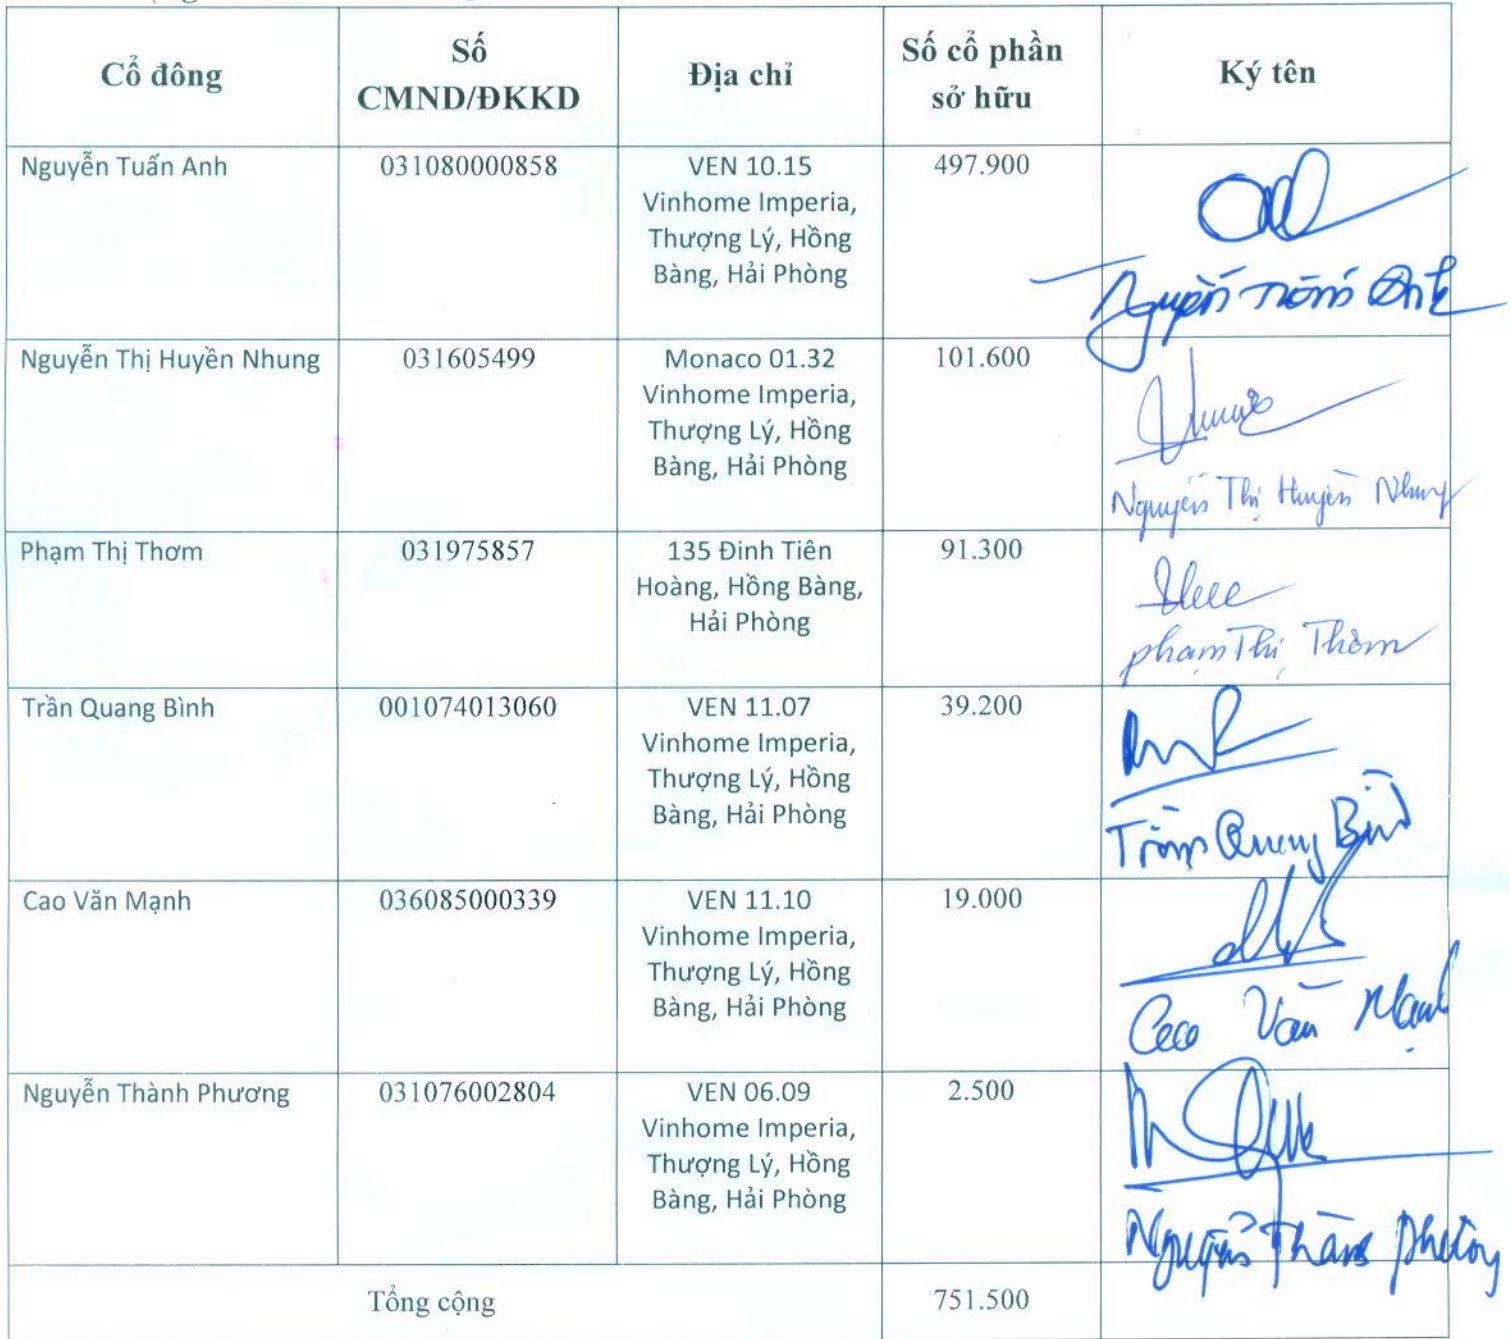 Cổ đông
Số
CMND/ĐKKD
Địa chỉ
Số cổ phần
sở hữu
Ký tên
Nguyễn Tuấn Anh
031080000858
VEN 10.15
Vinhome Imperia,
Thượng Lý, Hồng
Bàng, Hải Phòng
497.900
Nguyễn Tuấn Anh
Nguyễn Thị Huyền Nhung
031605499
Monaco 01.32
Vinhome Imperia,
Thượng Lý, Hồng
Bàng, Hải Phòng
101.600
Nguyễn Thị Huyền Nhung
Phạm Thị Thơm
031975857
135 Đinh Tiên
Hoàng, Hồng Bàng,
Hải Phòng
91.300
Phạm Thị Thơm
Trần Quang Bình
001074013060
VEN 11.07
Vinhome Imperia,
Thượng Lý, Hồng
Bàng, Hải Phòng
39.200
Trần Quang Bình
Cao Văn Mạnh
036085000339
VEN 11.10
Vinhome Imperia,
Thượng Lý, Hồng
Bàng, Hải Phòng
19.000
Cao Văn Mạnh
Nguyễn Thành Phương
031076002804
VEN 06.09
Vinhome Imperia,
Thượng Lý, Hồng
Bàng, Hải Phòng
2.500
Nguyễn Thành Phương
Tổng cộng
751.500